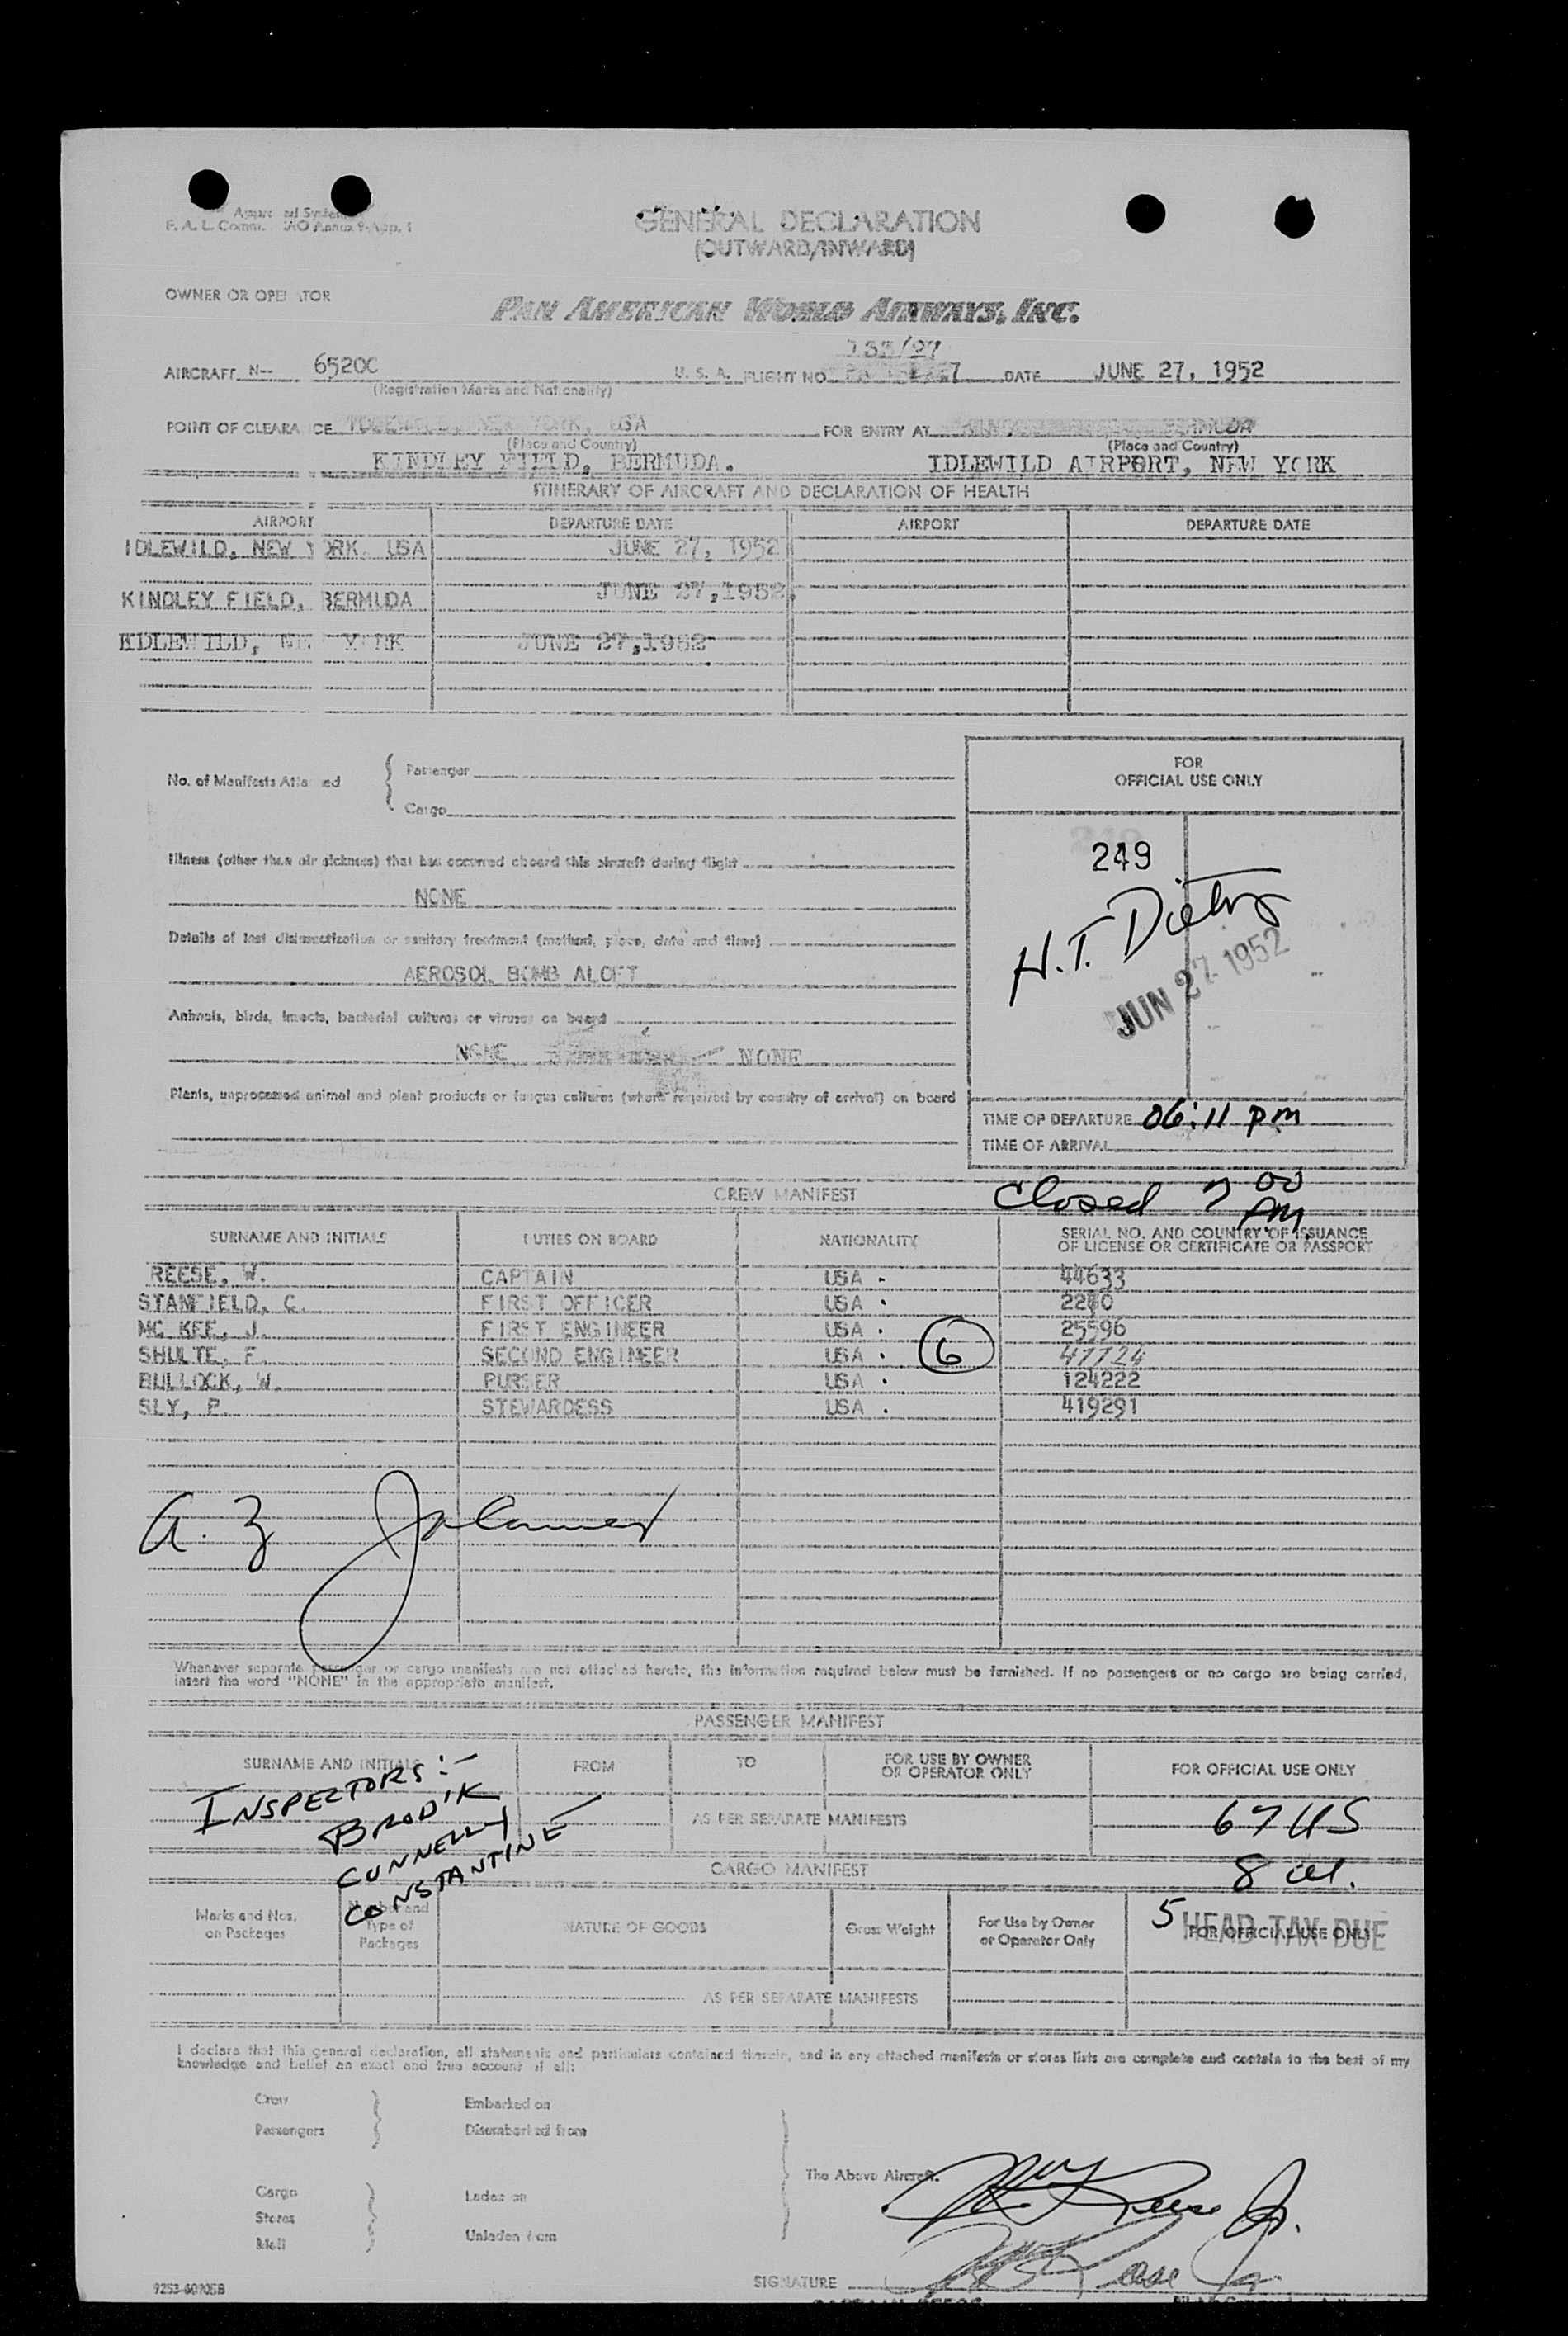 GENERAL DECLARATION
(OUTWARD/INWARD)
F. A. L. Comm.
OWNER OR
PAN AMERICAN WORLD AIRWAYS, INC.
AIRCRAFT N-- 6520C U. S. A. FLIGHT NO. DATE JUNE 27, 1952
(Registration Marks and Nationality)
POINT OF IDLEWILD, NEW YORK, USA FOR ENTRY AT BERMUDA
(Place and Country) (Place and Country)
KINDLEY FIELD, BERMUDA. IDLEWILD AIRPORT, NEW YORK
ITINERARY OF AIRCRAFT AND DECLARATION OF HEALTH
AIRPORT DEPARTURE DATE AIRPORT DEPARTURE DATE
IDLEWILD, NEW YORK, USA JUNE 27, 1952
KINDLEY FIELD, BERMUDA JUNE 27,1952.
IDLEWILD, YORK JUNE 27,1952
No. of Manifests Passenger
Cargo
FOR
OFFICIAL USE ONLY
Illness (other than air sickness) that has occurred aboard this aircraft during flight
NONE
249
H.T.
JUN 27 1952
Details of last disinsectization or sanitary treatment (method, place, date and time)
AEROSOL BOMB ALOFT
Animals, birds, insects, bacterial cultures or viruses on board
NONE NONE
Plants, unprocessed animal and plant products or fungus cultures (where required by country of arrival) on board
TIME OF DEPARTURE 06:11 pm
TIME OF ARRIVAL
Closed 7 00
CREW MANIFEST
SURNAME AND INITIALS DUTIES ON BOARD NATIONALITY SERIAL NO. AND COUNTRY OF ISSUANCE
OF LICENSE OR CERTIFICATE OR PASSPORT
REESE, W. CAPTAIN USA 44633
STANFIELD, C. FIRST OFFICER USA
MC KEE, J. FIRST ENGINEER USA 25596
SHULTE, F. SECOND ENGINEER USA 6 47724
BULLOCK, W. PURSER USA 124222
SLY, P. STEWARDESS USA 419291
Whenever separate passenger or cargo manifests are not attached hereto, the information required below must be furnished. If no passengers or no cargo are being carried,
insert the word "NONE" in the appropriate manifest.
PASSENGER MANIFEST
SURNAME AND INITIALS FROM TO FOR USE BY OWNER
OR OPERATOR ONLY FOR OFFICIAL USE ONLY
INSPECTORS :-
BRODIK
CUNNELLY
CONSTANTINE
AS PER SEPARATE MANIFESTS
67 US
8 al.
CARGO MANIFEST
Marks and Nos.
on Packages
Number and
Type of
Packages
NATURE OF GOODS
Gross Weight
For Use by Owner
or Operator Only
FOR OFFICIAL USE ONLY
5 HEAD TAX DUE
AS PER SEPARATE MANIFESTS
I declare that this general declaration, all statements and particulars contained therein, and in any attached manifests or stores lists are complete and contain to the best of my
knowledge and belief an exact and true account of all:
Crew Embarked on
Passengers Disembarked from
The Above Aircraft.
Cargo Laden on
Stores
Mail Unladen from
SIGNATURE